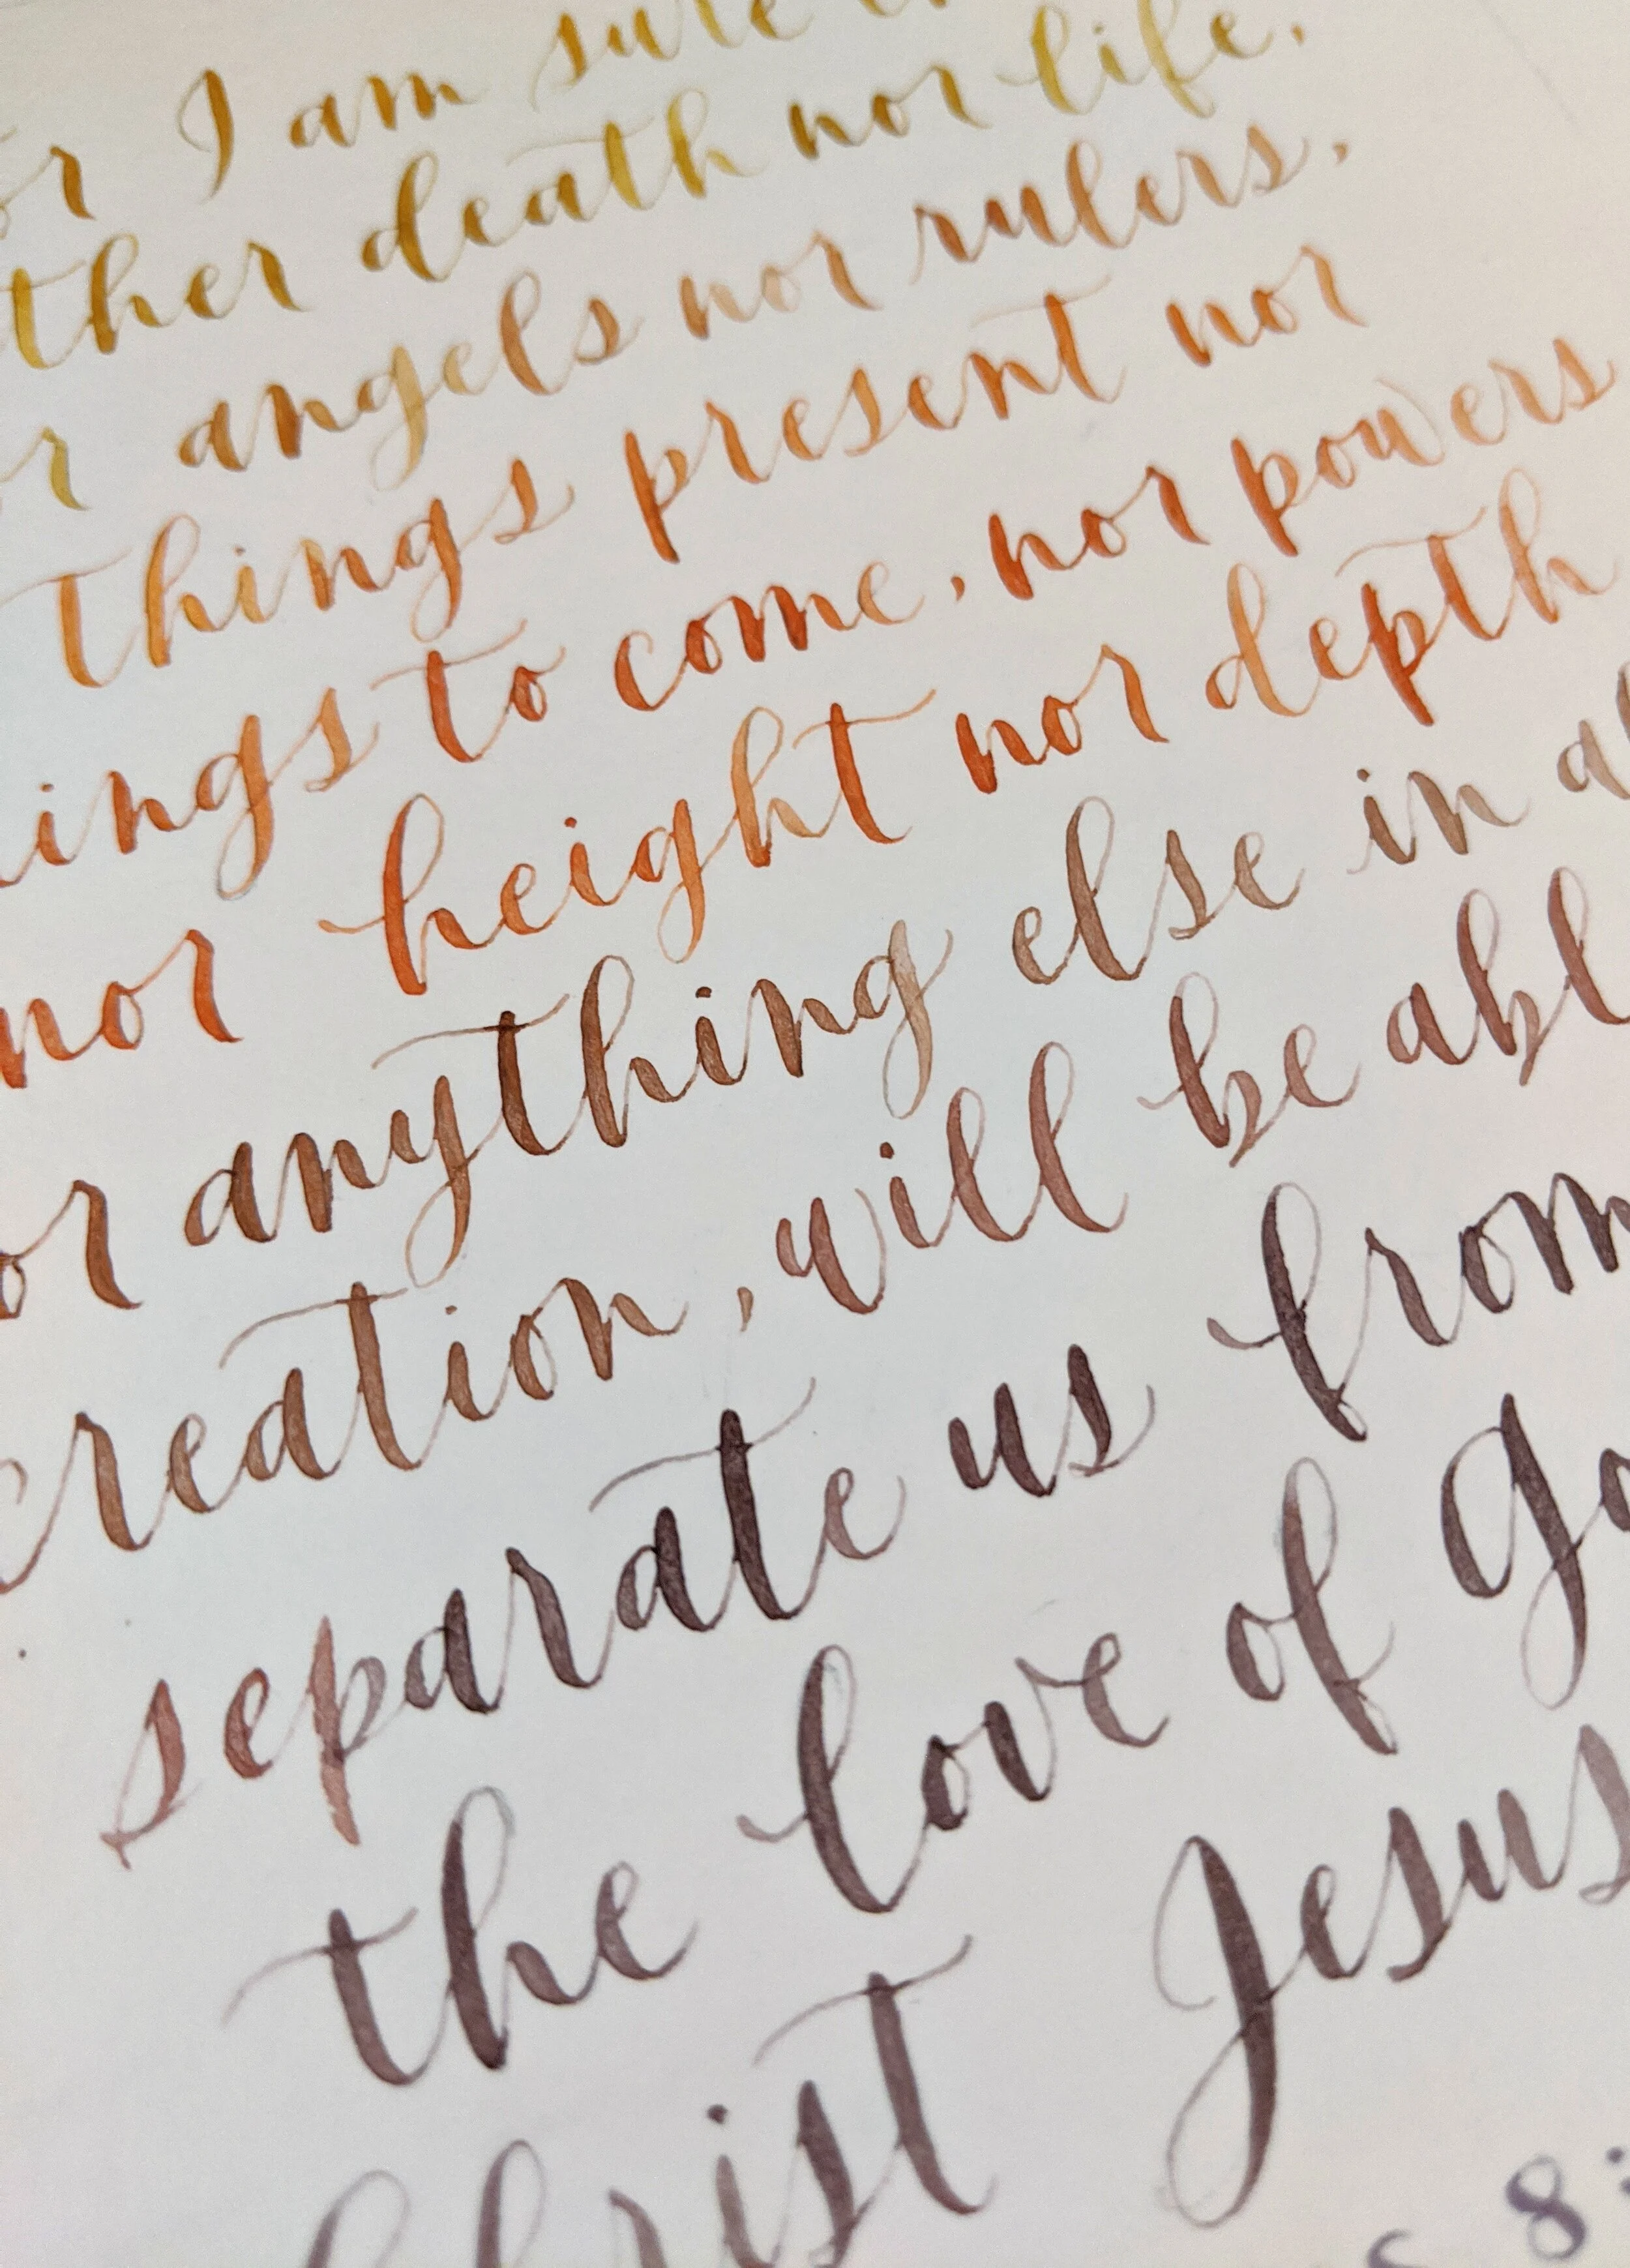 or I am sure
ther death nor life,
r angels nor rulers,
things present nor
ings to come, nor powers
nor height nor depth
or anything else in al
creation, will be abl
separate us from
the love of Go
Christ Jesus
s 8: